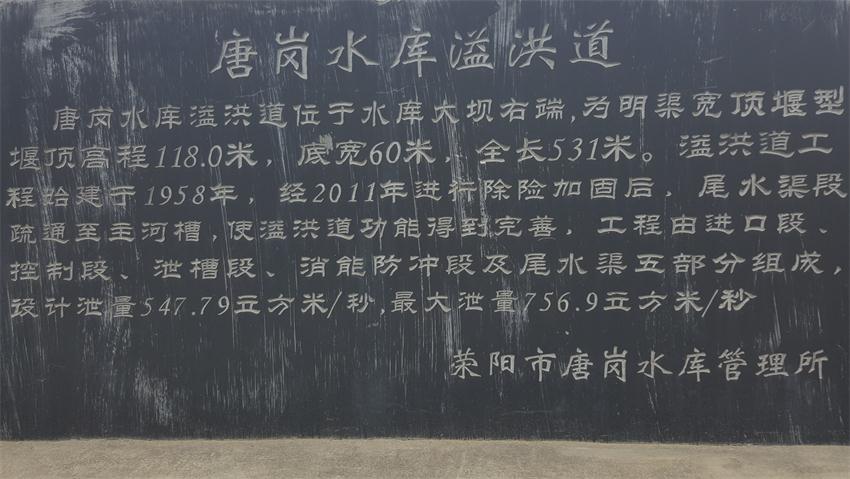 唐岗水库溢洪道
唐岗水库溢洪道位于水库大坝右端,为明渠宽顶堰型
堰顶高程118.0米，底宽60米、全长531米。溢洪道工
程始建于1958年，经2011年进行除险加固后，尾水渠段
疏通至主河槽,使溢洪道功能得到完善，工程由进口段、
控制段、泄槽段、消能防冲段及尾水渠五部分组成,
设计泄量547.79立方米/秒,最大泄量756.9立方米/秒
荥阳市唐岗水库管理所